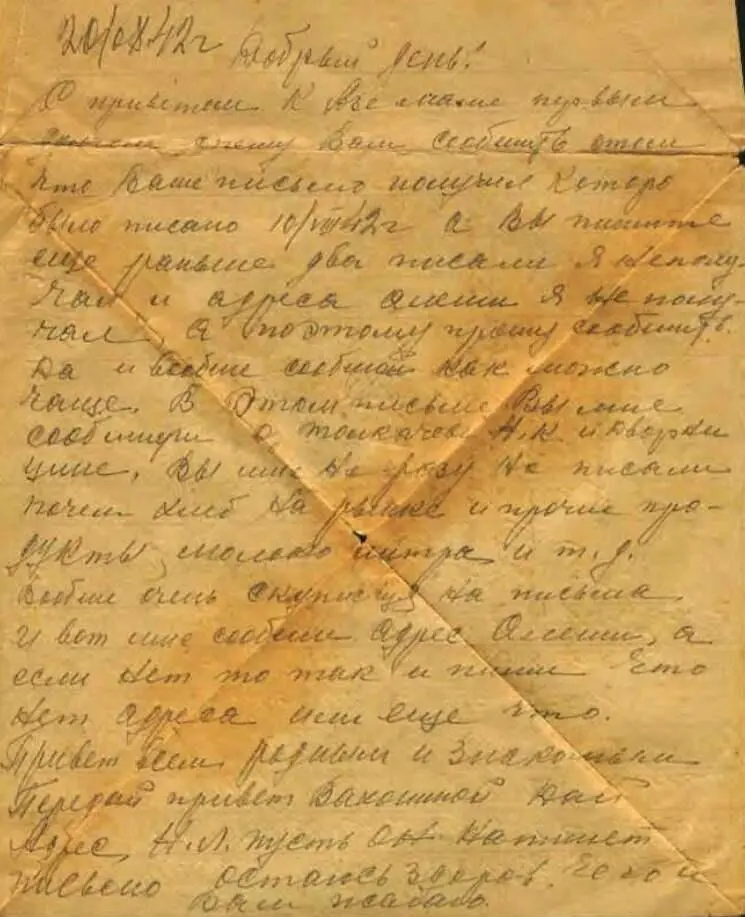 20/IX 42 г Добрый день!
С приветом к Вам
спешу Вам сообщить отом
что Ваше письмо получил которо
было писано 10/VIII 42 г а Вы пишите
еще раньше два писали я неполу-
чал и адреса я не полу-
чал, а поэтому прошу сообщить.
Да и вообще сообщай как можно
чаще. В этом письме Вы мне
сообщили о Толкачеве Н.К. и
Вы мне не разу не писали
почем хлеб на рынке и прочие про-
дукты, молоко литра и т.д.
Вообще очень на письма
и вот мне сообщи адрес а
если нет то так и пиши что
нет адреса или еще что.
Привет всем родным и знакомым
Передай привет дай
Адрес, Н.Л. пусть он напишет
письмо остаюсь здоров. Чего и
Вам желаю.